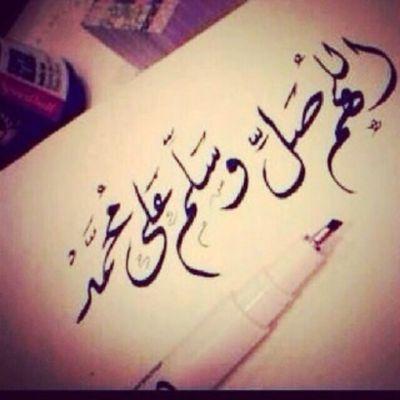 اللهم صَلِّ وسَلِّم عَلى مُحمَّدْ